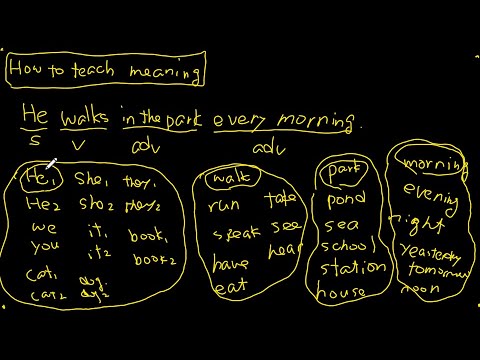 How to teach meaning
He walks in the park every morning.
S V adv adv
He1 She1 they1
He2 sho2 they2
we it1 book1
you it2 book2
cat1 dog1
cat2 dog2
walk
run take
speak see
have hear
eat
park
pond
sea
school
station
house
morning
evening
night
yeasterday
tomorrow
noon